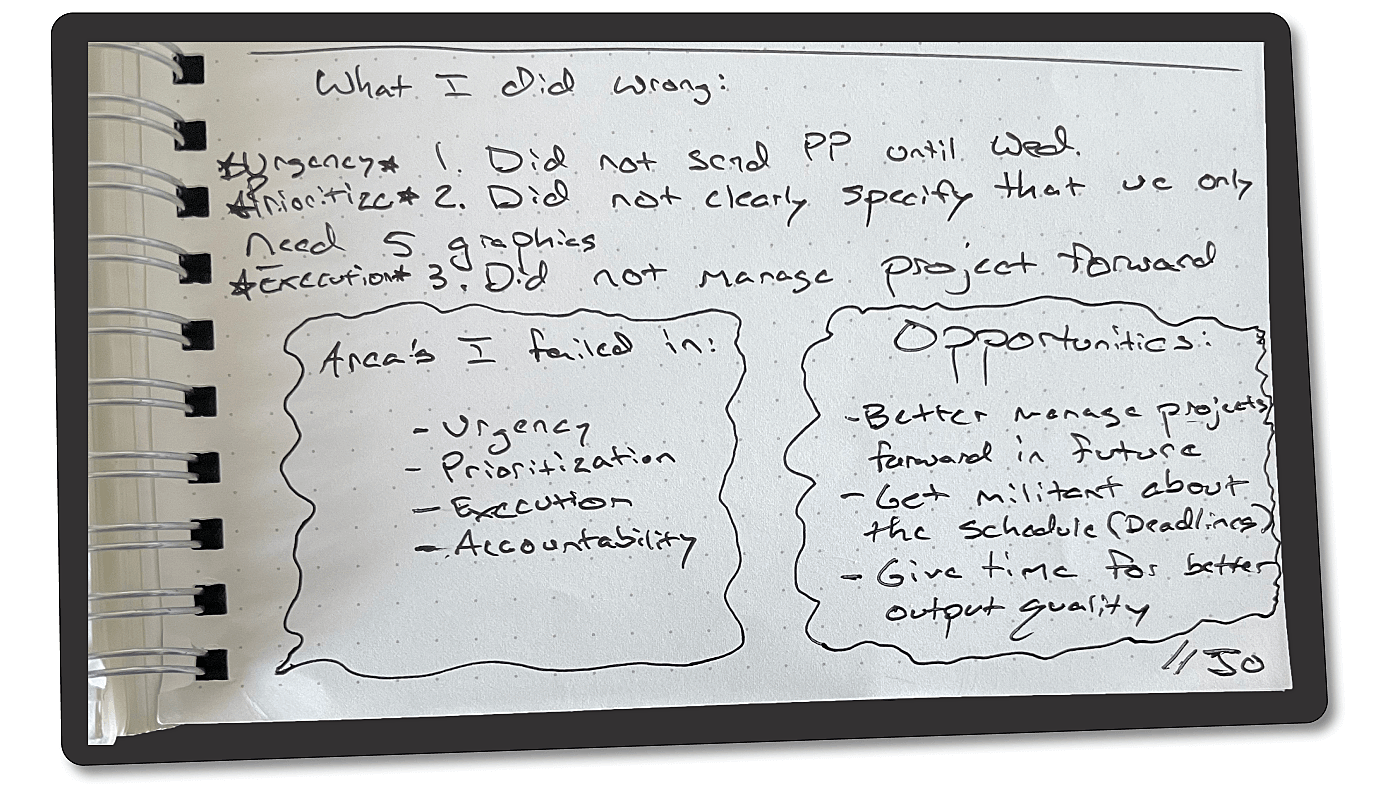 What I Did wrong:
*Urgency* 1. Did not send PP until Wed.
*Prioritize* 2. Did not clearly specify that we only
need 5 graphics
*Execution* 3. Did not manage project forward
Area's I failed in:
- Urgency
- Prioritization
- Execution
- Accountability
Opportunities:
- Better manage projects
forward in future
- Get militant about
the schedule (Deadlines)
- Give time for better
output quality
// JO